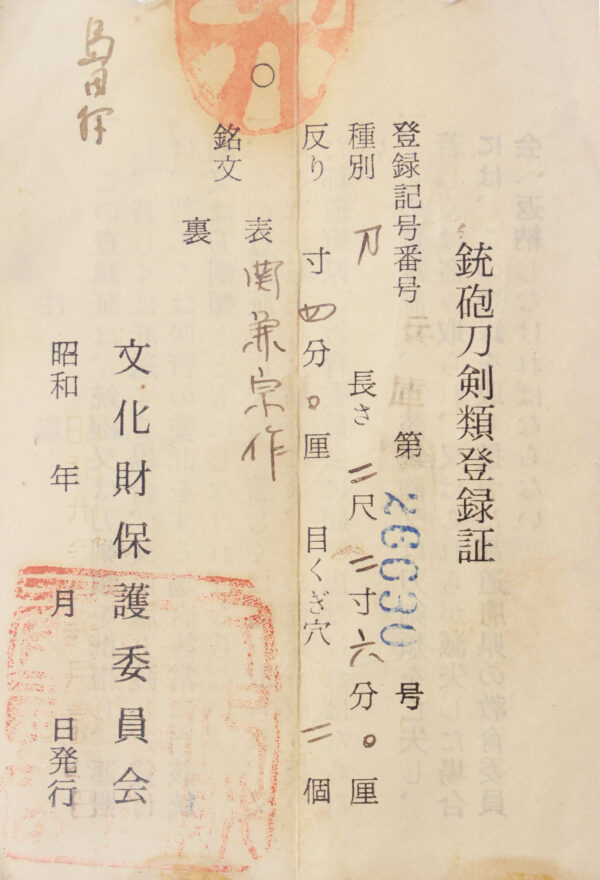 銃砲刀剣類登録証
登録記号番号 第26630号
種別 刀 長さ 二尺二寸六分〇厘
反り 寸四分〇厘 目くぎ穴 二個
銘文 表 関兼宗作
裏
文化財保護委員会
昭和 年 月 日発行